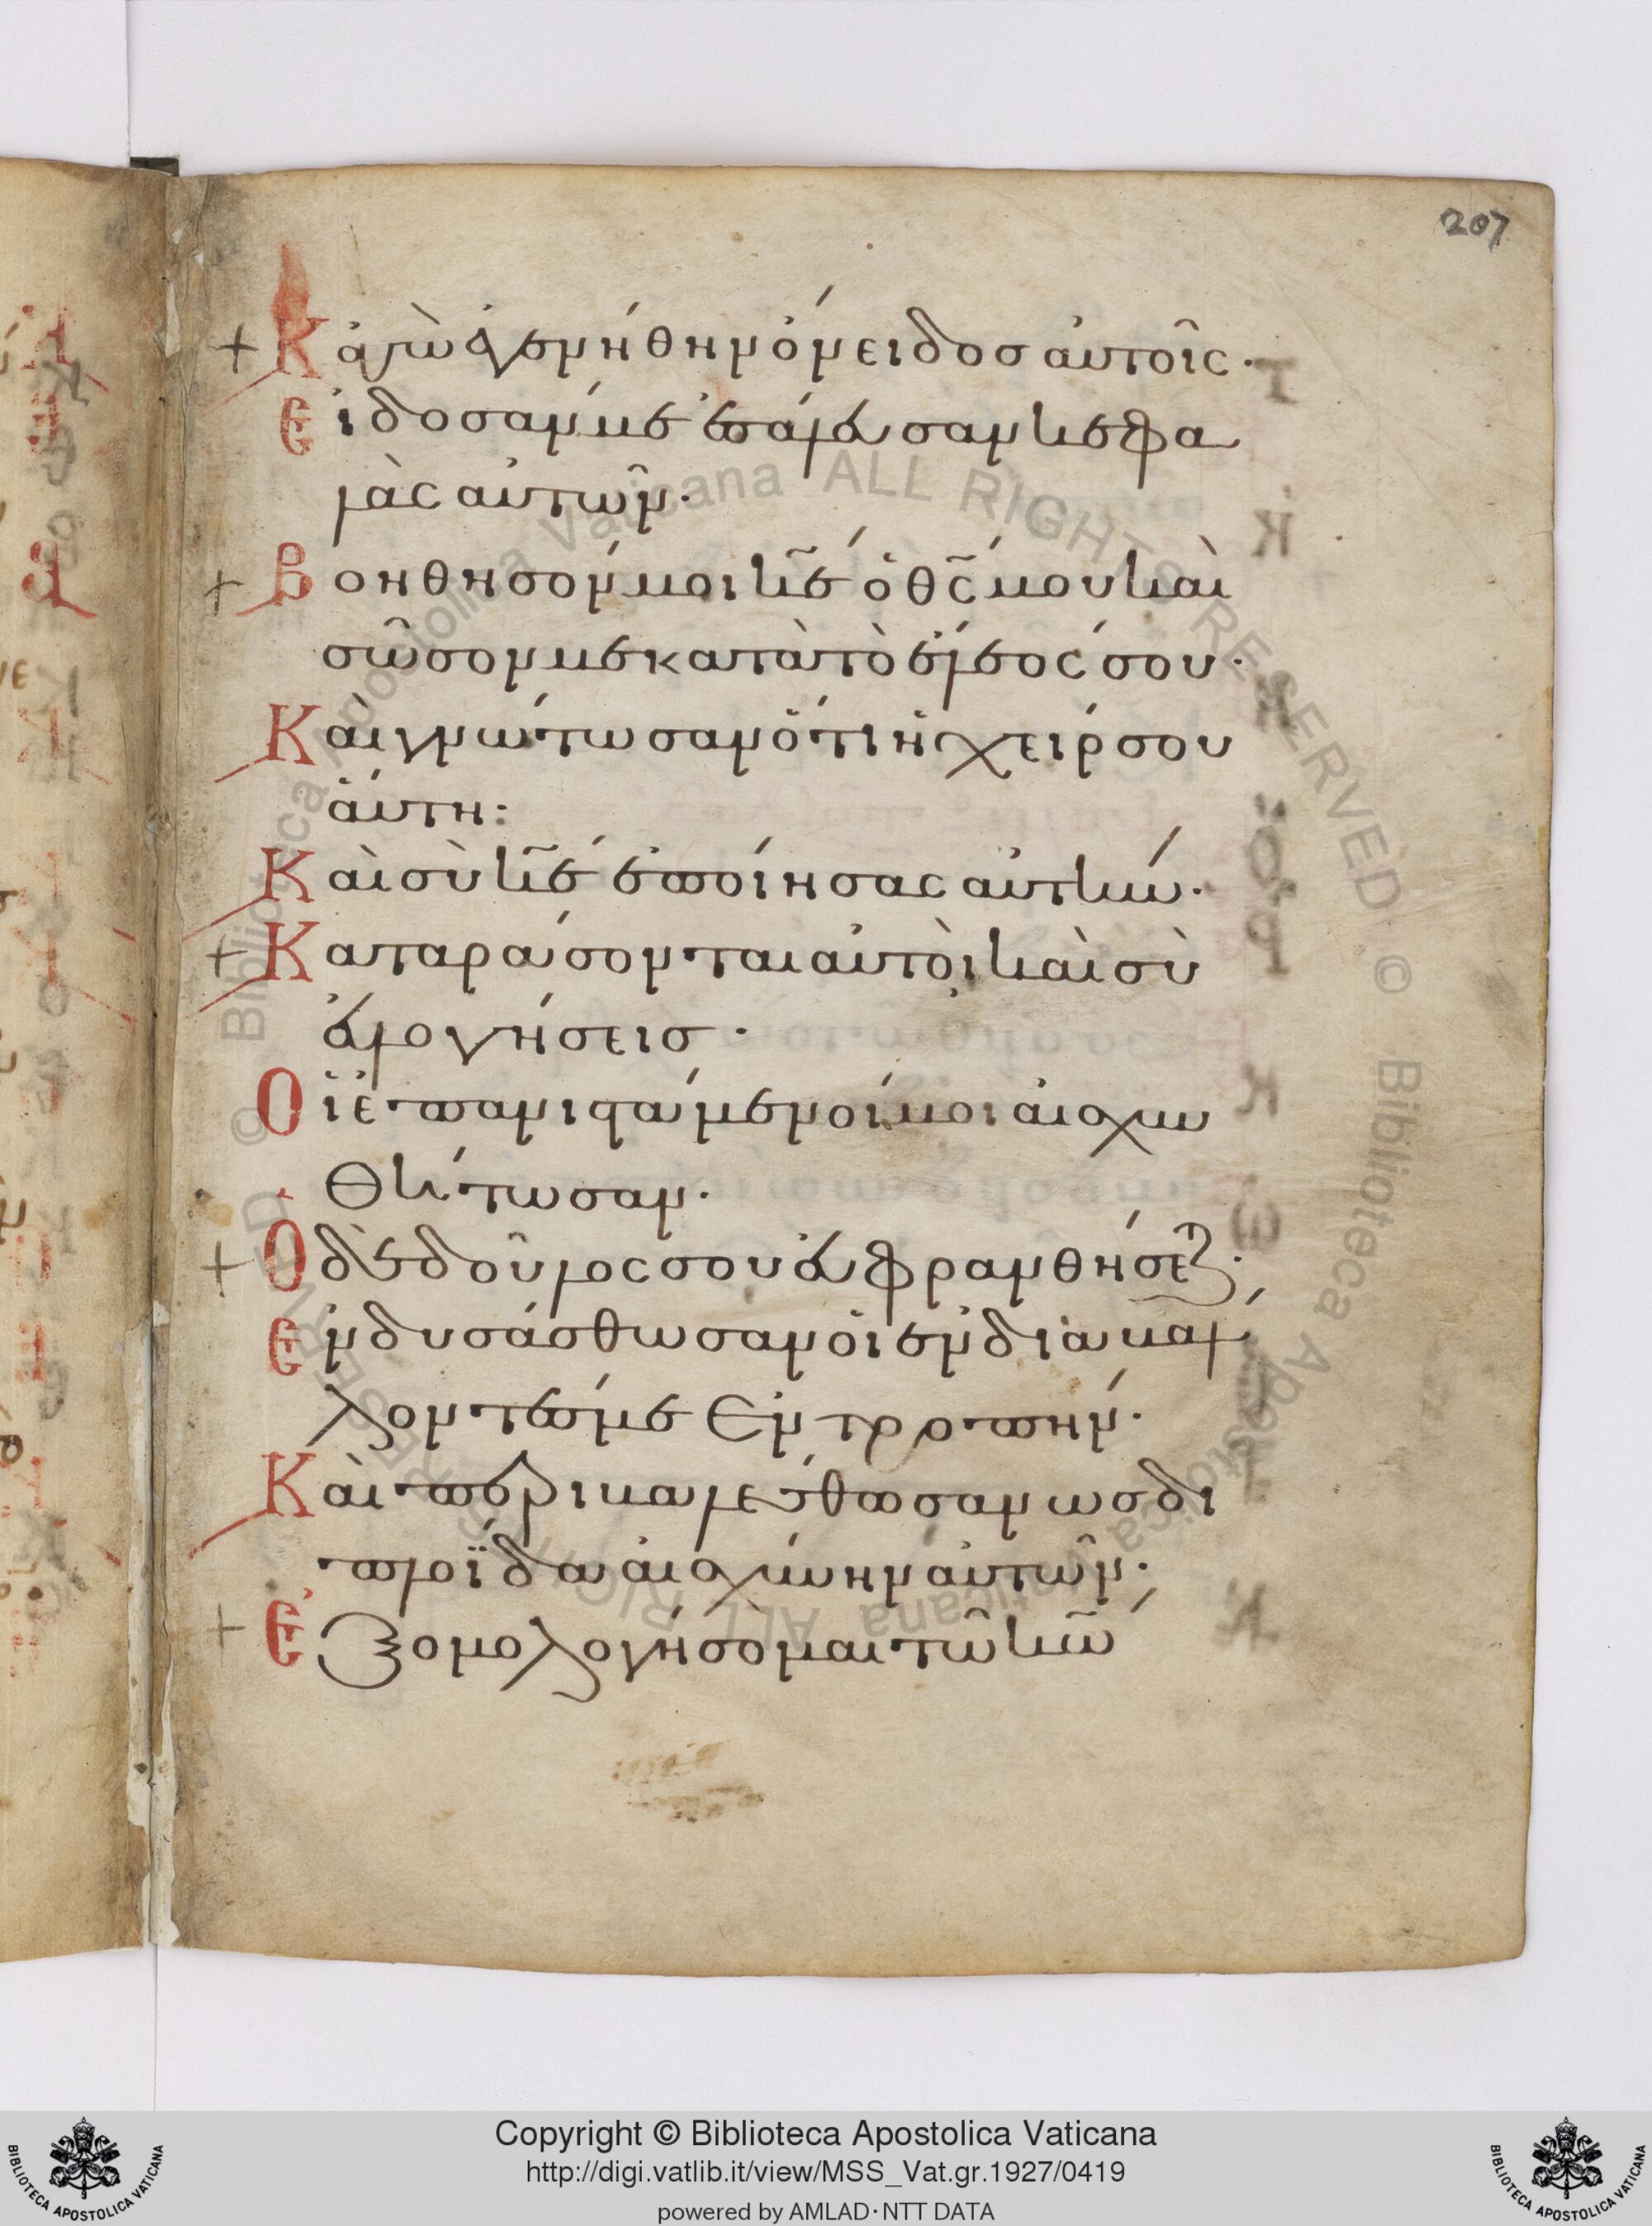 207
Κἀγὼ ἐγενήθην ὄνειδοσ αὐτοῖς·
Εἴδοσάν με ἐσάλευσαν κεφα
λὰς αὐτῶν·
Βοήθησόν μοι κ̅ε ὁ θ̅ς μου καὶ
σῶσον με κατὰ τὸ ἔλεος σου·
Καὶ γνώτωσαν ὅτι ἡ χείρ σου
αὕτη:
Καὶ σὺ κ̅ε ἐποίησας αὐτήν·
Καταράσονται αὐτοὶ καὶ σὺ
εὐλογήσεισ·
Οἱ ἐπανιστάμενοί μοι αἰσχυν
θήτωσαν·
Ὁ δὲ δοῦλος σου εὐφρανθήσετ·
Ἐνδυσάσθωσαν οἱ ἐνδιαβάλ
λοντές με ἐντροπήν·
Καὶ περιβαλέσθωσαν ωσ δι
πλοΐδα αἰσχύνην αὐτῶν·
Ἐξομολογήσομαι τῶ κ̅ω
Copyright © Biblioteca Apostolica Vaticana
http://digi.vatlib.it/view/MSS_Vat.gr.1927/0419
powered by AMLAD·NTT DATA
BIBLIOTECA APOSTOLICA VATICANA
BIBLIOTECA APOSTOLICA VATICANA